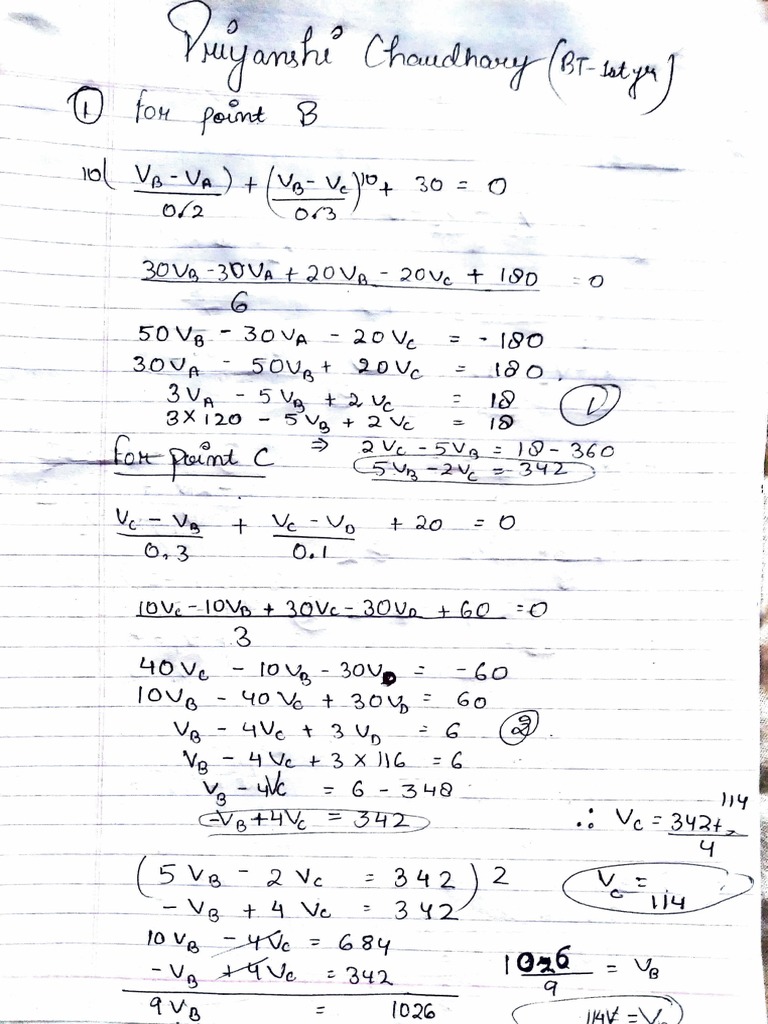 Priyanshi Chaudhary (BT-1st yr)
① for point B
10( VB - VA ) / 0.2 + ( VB - VC )10 / 0.3 + 30 = 0
30VB - 30VA + 20VB - 20VC + 180 / 6 = 0
50VB - 30VA - 20VC = - 180
30VA - 50VB + 20VC = 180
3VA - 5VB + 2VC = 18 ①
3×120 - 5VB + 2VC = 18
⇒ 2VC - 5VB = 18 - 360
for point C 5VB - 2VC = 342
VC - VB / 0.3 + VC - VD / 0.1 + 20 = 0
10VC - 10VB + 30VC - 30VD + 60 / 3 = 0
40VC - 10VB - 30VD = -60
10VB - 40VC + 30VD = 60
VB - 4VC + 3VD = 6 ②
VB - 4VC + 3×116 = 6
VB - 4VC = 6 - 348
-VB + 4VC = 342
∴ VC = 342+114 / 4
( 5VB - 2VC = 342 ) 2
VC = 114
- VB + 4VC = 342
10VB - 4VC = 684
- VB + 4VC = 342
1026 / 9 = VB
9VB = 1026
114V = VB